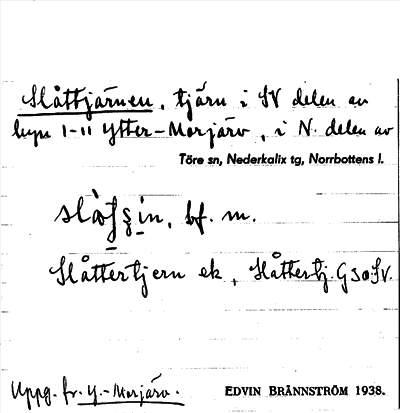 Slåttjärnen, tjärn i SV delen av
byn 1-11 Ytter-Morjärv, i N. delen av
Töre sn, Nederkalix tg, Norrbottens l.
bf. m.
Slåttertjern ek, Slåttertj. G30SV.
Uppg. fr. Y.-Morjärv.
EDVIN BRÄNNSTRÖM 1938.